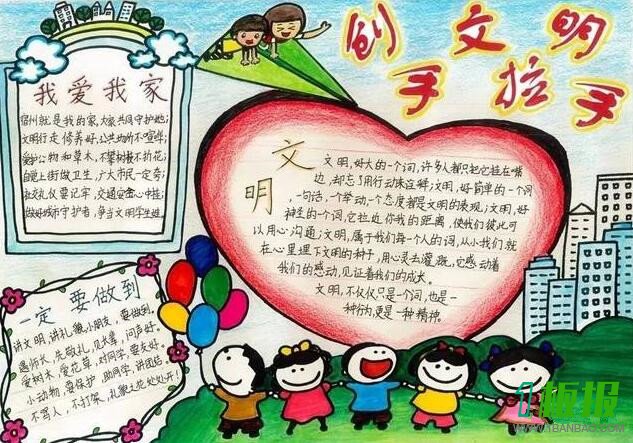 创文明
手拉手
我爱我家
宿州就是我的家,大家共同守护她;
文明行走修养好,公共场所不喧哗;
爱护公物和草木,不攀树枝不折花;
自觉上街做卫生,广大市民一定夸;
社交礼仪要记牢,交通安全心中挂;
做好城市守护者,争当文明学生娃。
文明
文明,好大的一个词,许多人都只把它挂在嘴
边,却忘了用行动来诠释;文明,好简单的一个词
,一句话,一个举动,一个态度都是文明的表现;文明,好
神圣的一个词,它拉近你我的距离,使我们彼此可
以用心沟通;文明,属于我们每一个人的词,从小我们就
在心里埋下文明的种子,用心灵去灌溉,它感动着
我们的感动,见证着我们的成长。
文明,不仅仅只是一个词,也是一
种行为,更是一种精神。
一定要做到
讲文明,讲礼貌,小朋友,要做到。
遇师长,先敬礼,见长辈,问声好。
爱树木,爱花草,对同学,要友好。
小动物,要保护,助同学,讲团结。
不骂人,不打架,礼貌之花处处开!
1板报
1BANBAO.COM